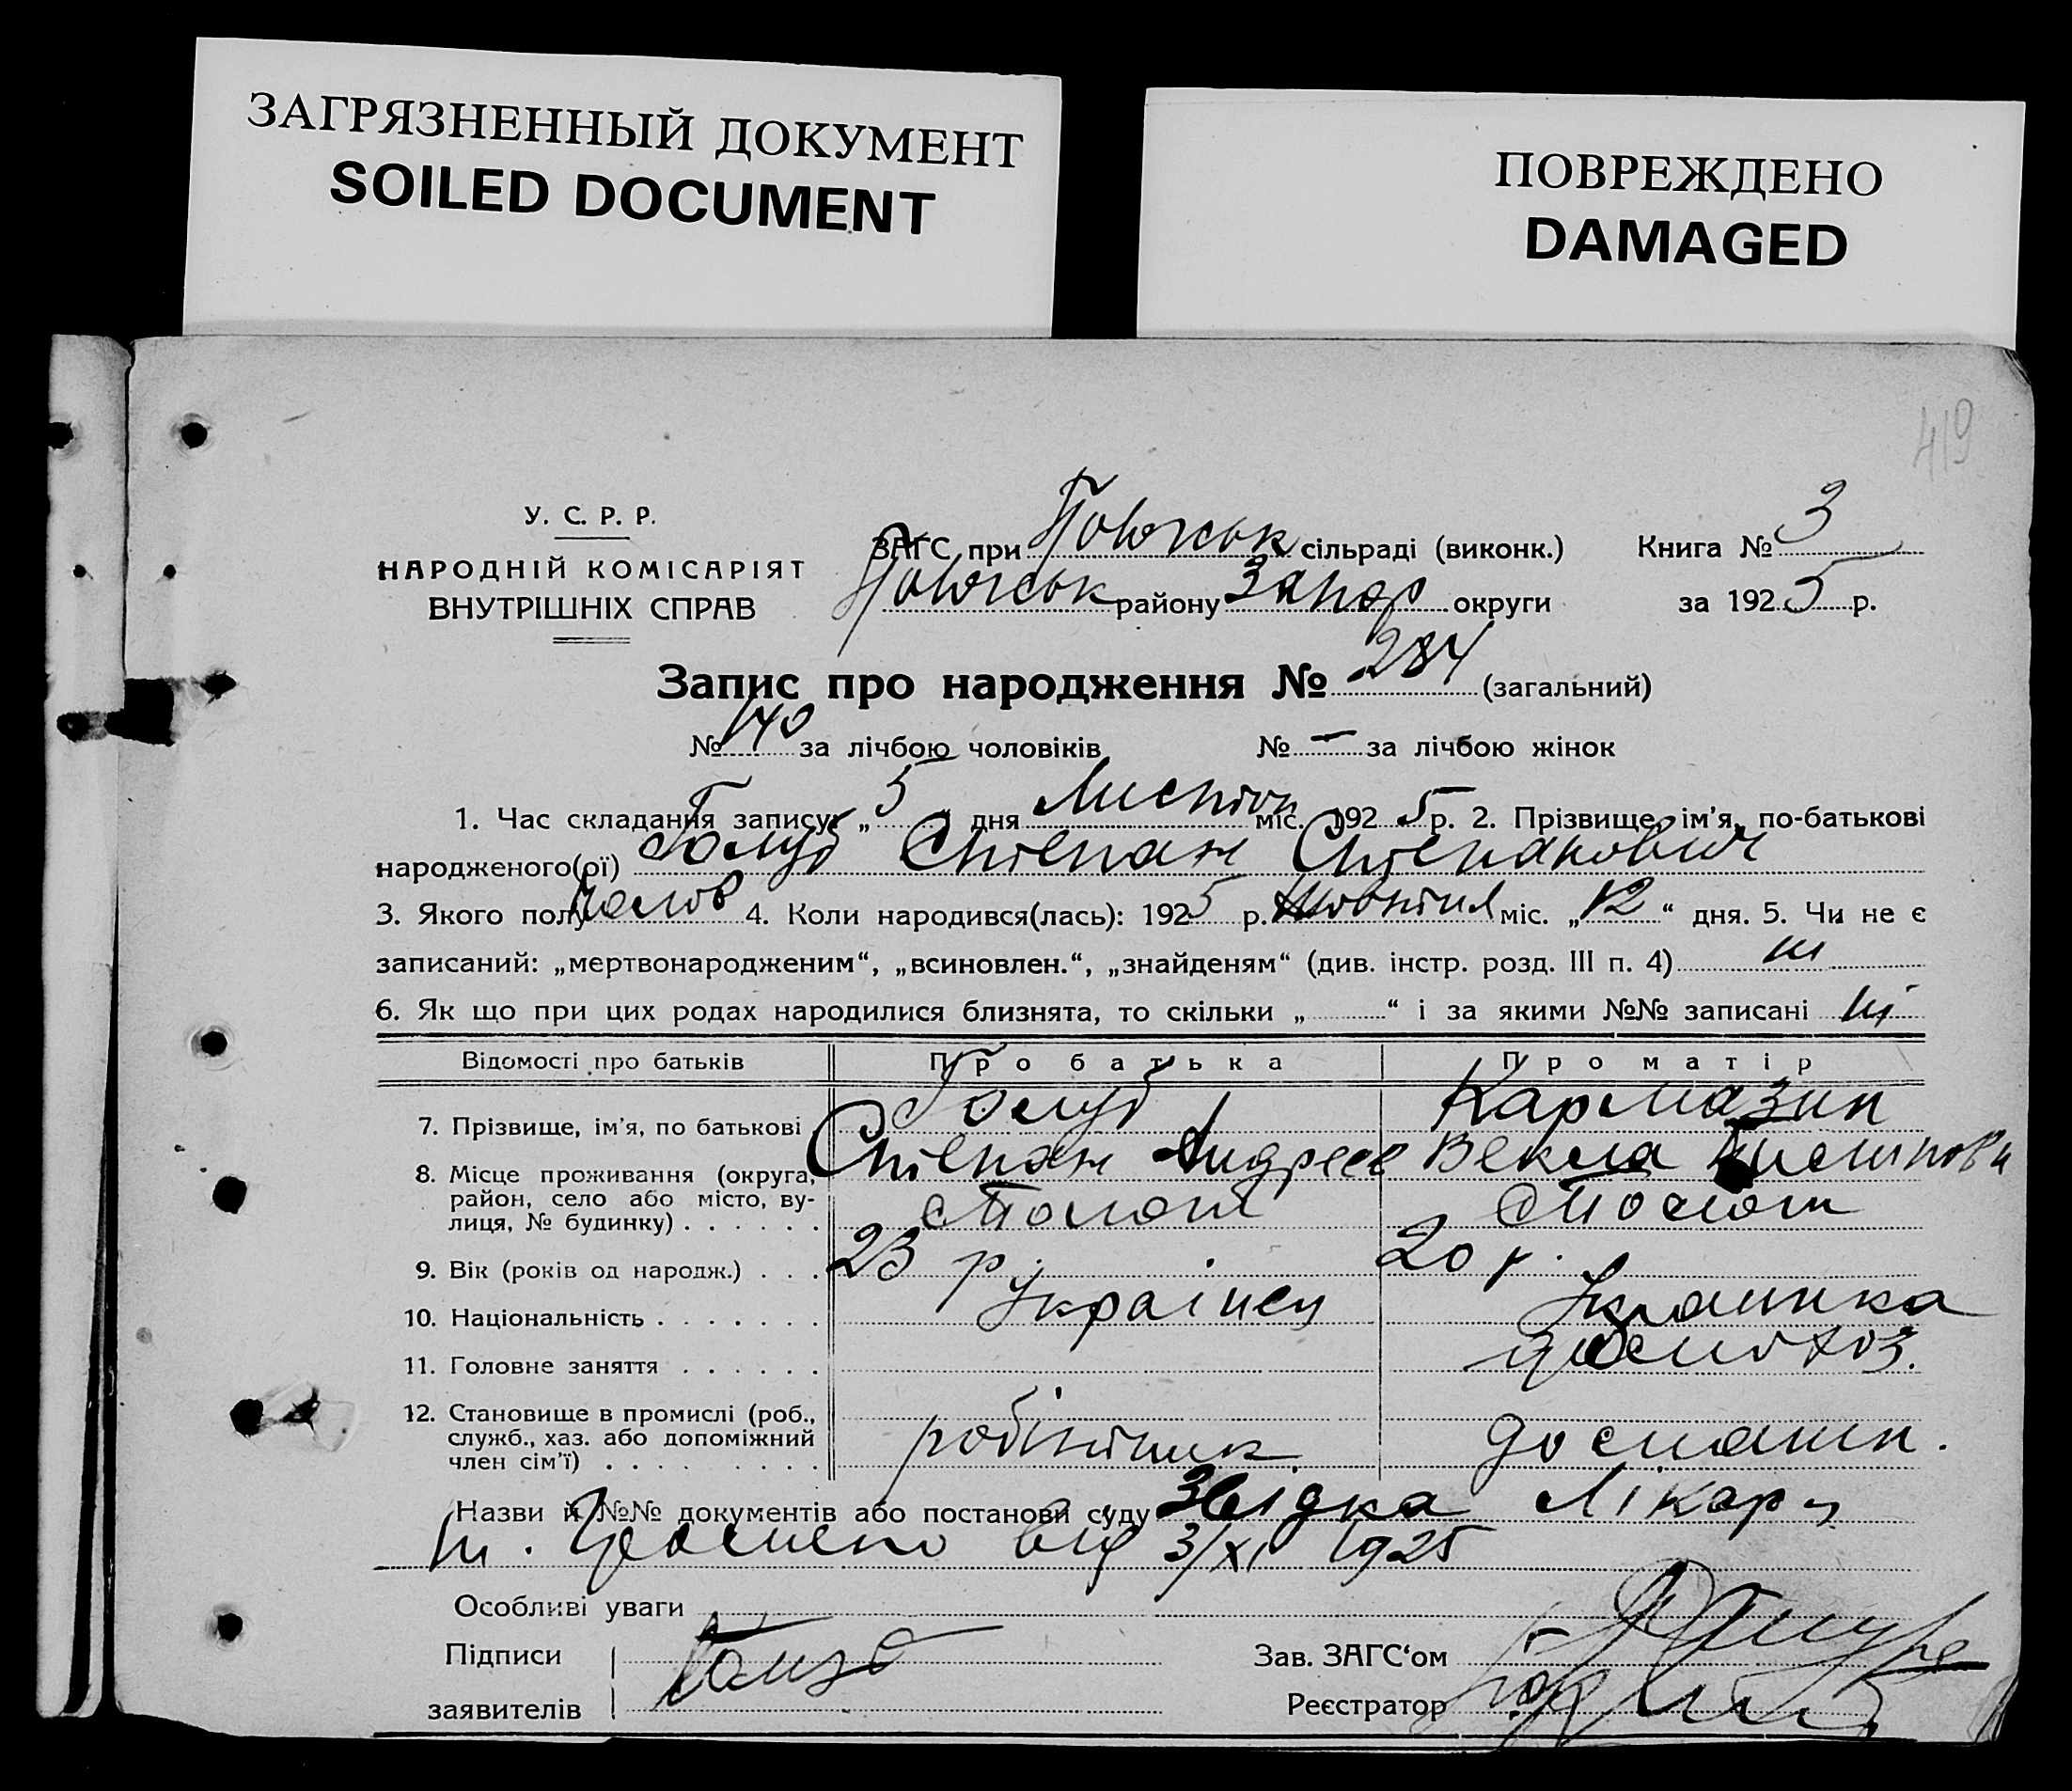 ЗАГРЯЗНЕННЫЙ ДОКУМЕНТ
SOILED DOCUMENT
ПОВРЕЖДЕНО
DAMAGED
419
У. С. Р. Р.
НАРОДНІЙ КОМІСАРІЯТ
ВНУТРІШНІХ СПРАВ
ЗАГС при сільраді (виконк.) Книга № 3
району Запор округи за 1925 р.
Запис про народження № 284 (загальний)
№ 140 за лічбою чоловіків № — за лічбою жінок
1. Час складання запису: „5“ дня Листоп міс. 1925 р. 2. Прізвище, ім'я, по-батькові
народженого(ої) Голуб Степан Степанович
3. Якого полу чолов 4. Коли народився(лась): 1925 р. Жовтня міс. „12“ дня. 5. Чи не є
записаний: „мертвонародженим“, „всиновлен.“, „знайденям“ (див. інстр. розд. III п. 4) ні
6. Як що при цих родах народилися близнята, то скільки „ “ і за якими №№ записані ні
Відомості про батьків Про батька Про матір
7. Прізвище, ім'я, по батькові Голуб Степан Андреев Кармазин Векла
8. Місце проживання (округа, район, село або місто, вулиця, № будинку)
9. Вік (років од народж.) 23 р 20 р.
10. Національність українец Українка
11. Головне заняття
12. Становище в промислі (роб., служб., хаз. або допоміжний член сім'ї) робітник
Назви й №№ документів або постанови суду Звідка Лікаря
від 3/XI 1925
Особливі уваги
Підписи Голуб Зав. ЗАГС'ом
заявителів Реєстратор